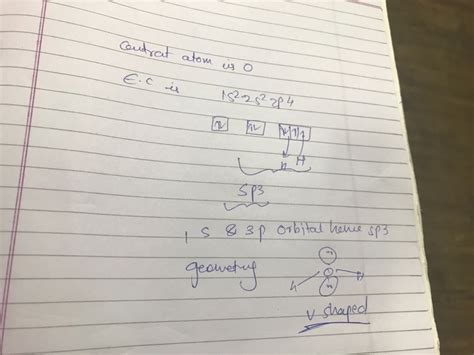 Central atom is O
E.C is 1s² 2s² 2p4
1↓ 1↓ 1↓ 1 1
H H
Sp3
1 S & 3p orbital hence sp3
geometry
O
H H
V shaped